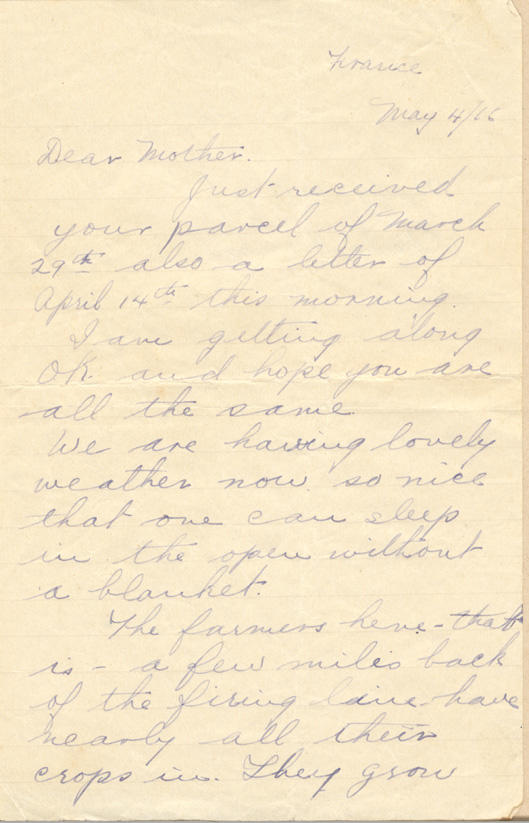 France
May 4/16
Dear Mother.
Just received
your parcel of March
29th also a letter of
April 14th this morning.
I am getting along
OK. and hope you are
all the same
We are having lovely
weather now. so nice
that one can sleep
in the open without
a blanket.
The farmers here - that
is - a few miles back
of the firing line - have
nearly all their
crops in. They grow